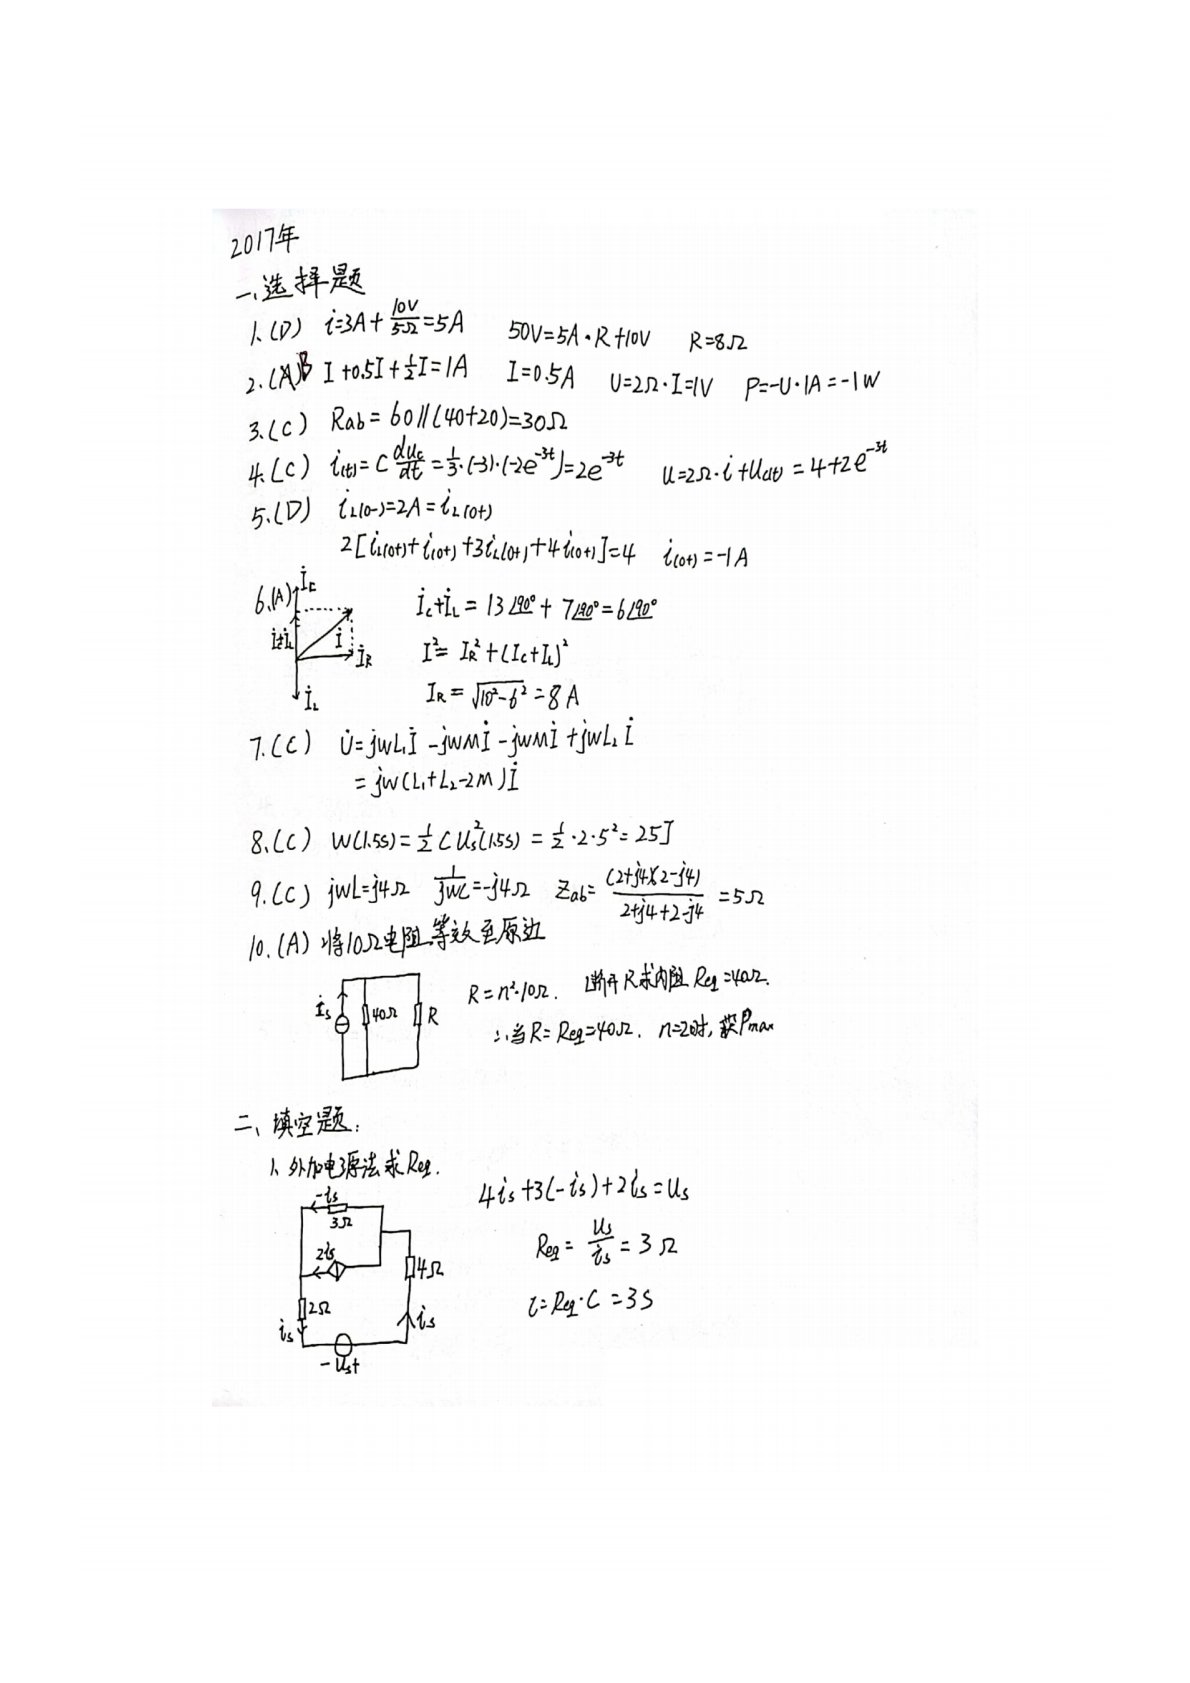 2017年
一、选择题
1.(D) i=3A+10V/5Ω=5A 50V=5A·R+10V R=8Ω
2.(A)B I+0.5I+½I=1A I=0.5A U=2Ω·I=1V P=-U·1A=-1W
3.(C) Rab=60//(40+20)=30Ω
4.(C) i(t)=C duc/dt=⅓·(-3)·(-2e^-3t)=2e^-3t U=2Ω·i+Uc(t)=4+2e^-3t
5.(D) iL(0-)=2A=iL(0+)
2[iL(0+)+i(0+)+3iL(0+)+4i(0+)]=4 i(0+)=-1A
6.(A) İc İc+İL=13∠90°+7∠90°=6∠90°
İ+İL İ İR I²=IR²+(Ic+IL)²
İL IR=√(10²-6²)=8A
7.(C) U̇=jwL₁İ-jwMİ-jwMİ+jwL₂İ
=jw(L₁+L₂-2M)İ
8.(C) W(1.5s)=½CUs²(1.5s)=½·2·5²=25J
9.(C) jwL=j4Ω 1/jwC=-j4Ω Zab=(2+j4)(2-j4)/2+j4+2-j4=5Ω
10.(A) 将10Ω电阻等效至原边
İs 40Ω R R=n²·10Ω. 断开R求内阻Req=40Ω.
∴当R=Req=40Ω. n=2时,获Pmax
二、填空题:
1、外加电源法求Req.
-is 4is+3(-is)+2is=Us
3Ω
2is 4Ω Req=Us/is=3Ω
2Ω τ=Req·C=3S
is is
-Us+